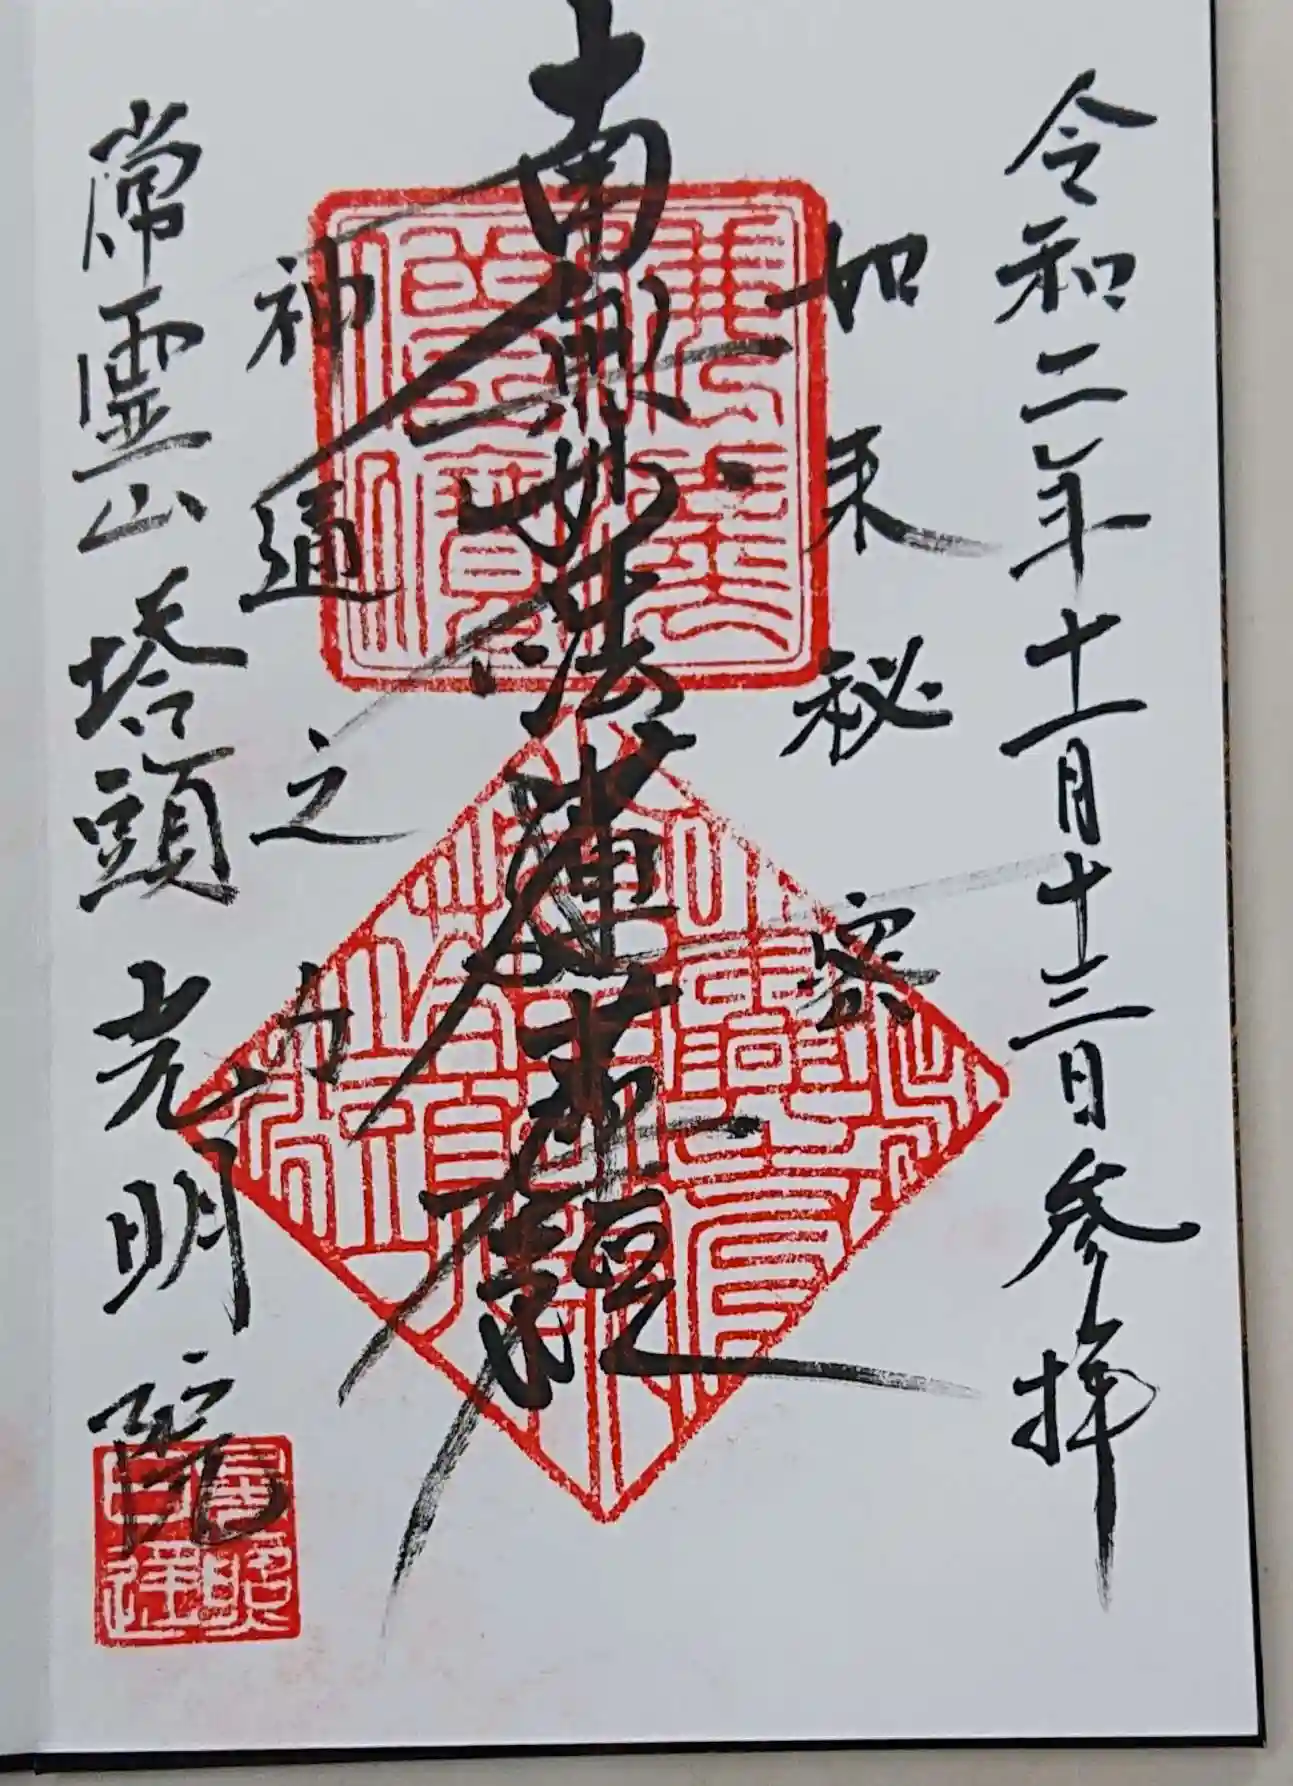 令和二年十一月十三日参拝
如来秘密
南無妙法蓮華経
神通之力
常霊山塔頭光明院